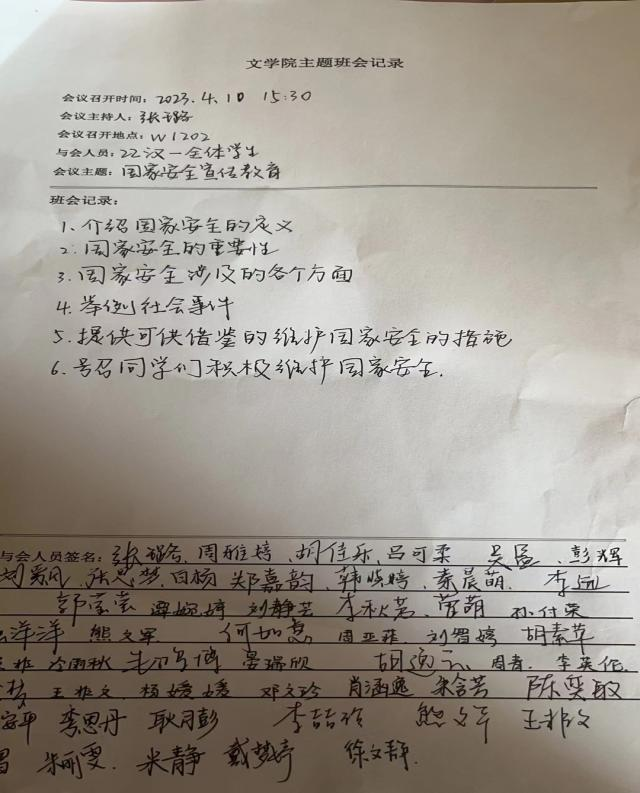 文学院主题班会记录
会议召开时间：2023.4.10 15:30
会议主持人：张璐
会议召开地点：W1202
与会人员：22汉一全体学生
会议主题：国家安全宣传教育
班会记录：
1. 介绍国家安全的定义
2. 国家安全的重要性
3. 国家安全涉及的各个方面
4. 举例社会事件
5. 提供可供借鉴的维护国家安全的措施
6. 号召同学们积极维护国家安全.
与会人员签名：张璐 周雅婷、胡佳乐、吕可柔 彭辉
张思梦、田杨 郑嘉韵 秦晨萌
郭莹莹 谭婉婷 刘静芸 李秋茗、
洋洋 熊文军 何如意 周亚菲、刘智婷 胡素苹
晏瑞欣
王非文、杨媛媛 邓文玲 肖涵逸
李思丹 耿月彭 熊文军 王非文
朱丽雯. 米静 戴梦婷 徐文静.